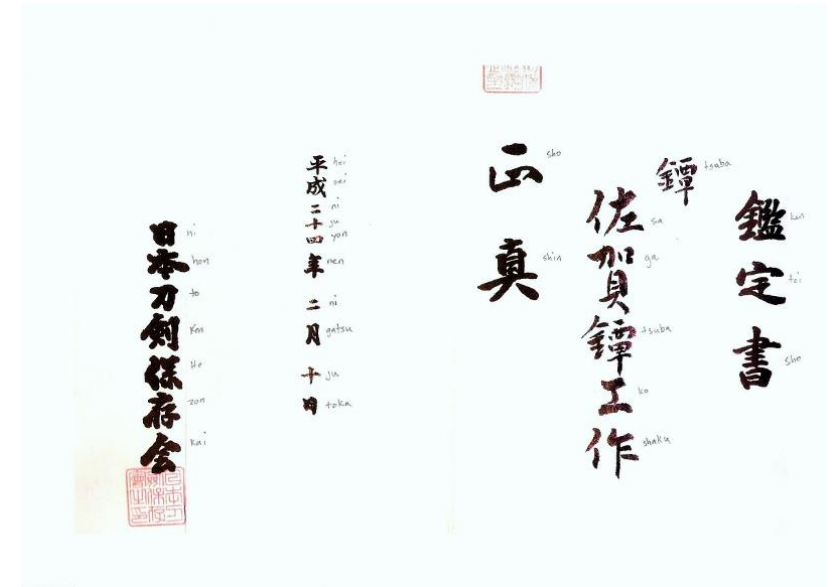 鑑定書
kan
tei
sho
鐔
tsuba
佐賀鐔工作
sa
ga
tsuba
ko
shaku
正真
sho
shin
平成二十四年二月十日
hei
sei
ni
ju
yon
nen
ni
gatsu
ju
toka
日本刀剣保存会
ni
hon
to
ken
Ho
zon
kai